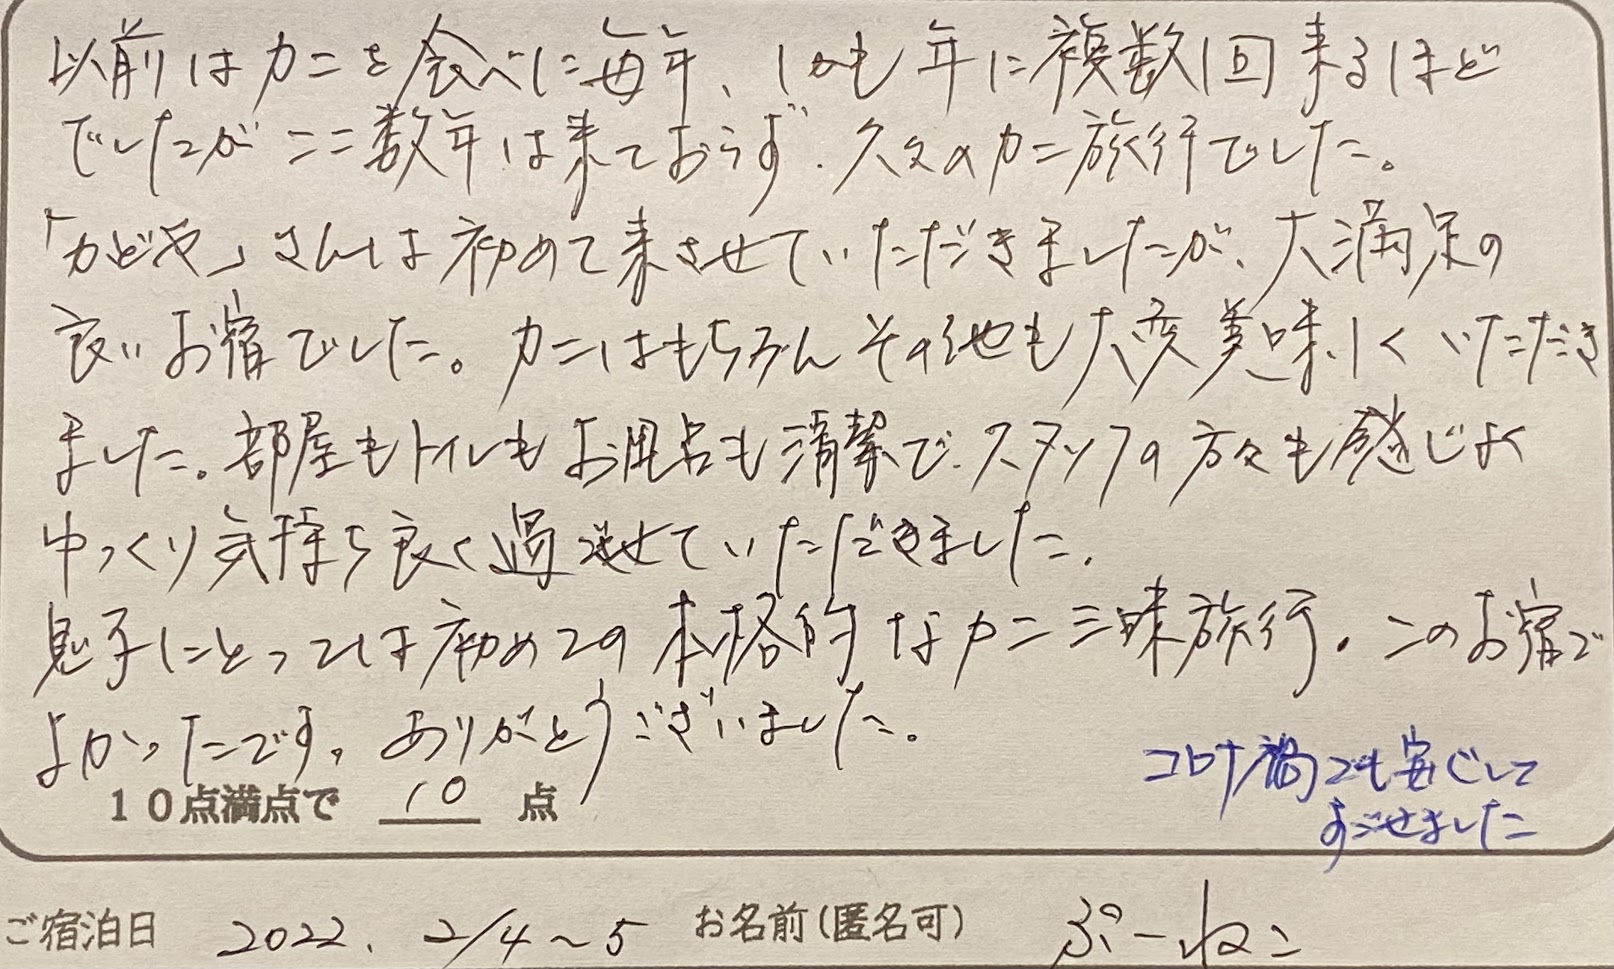 以前はカニを食べに毎年、しかも年に複数回来るほど
でしたがここ数年は来ておらず、久々のカニ旅行でした。
「かどや」さんは初めて来させていただきましたが、大満足の
良いお宿でした。カニはもちろんその他も大変美味しくいただき
ました。部屋もトイレもお風呂も清潔で、スタッフの方々も感じよく
ゆっくり気持ち良く過させていただきました。
息子にとっては初めての本格的なカニ三昧旅行。このお宿で
よかったです。ありがとうございました。
コロナ禍でも安心して
すごせました
10点満点で 10 点
ご宿泊日 2022、2/4～5 お名前(匿名可) ぷーねこ